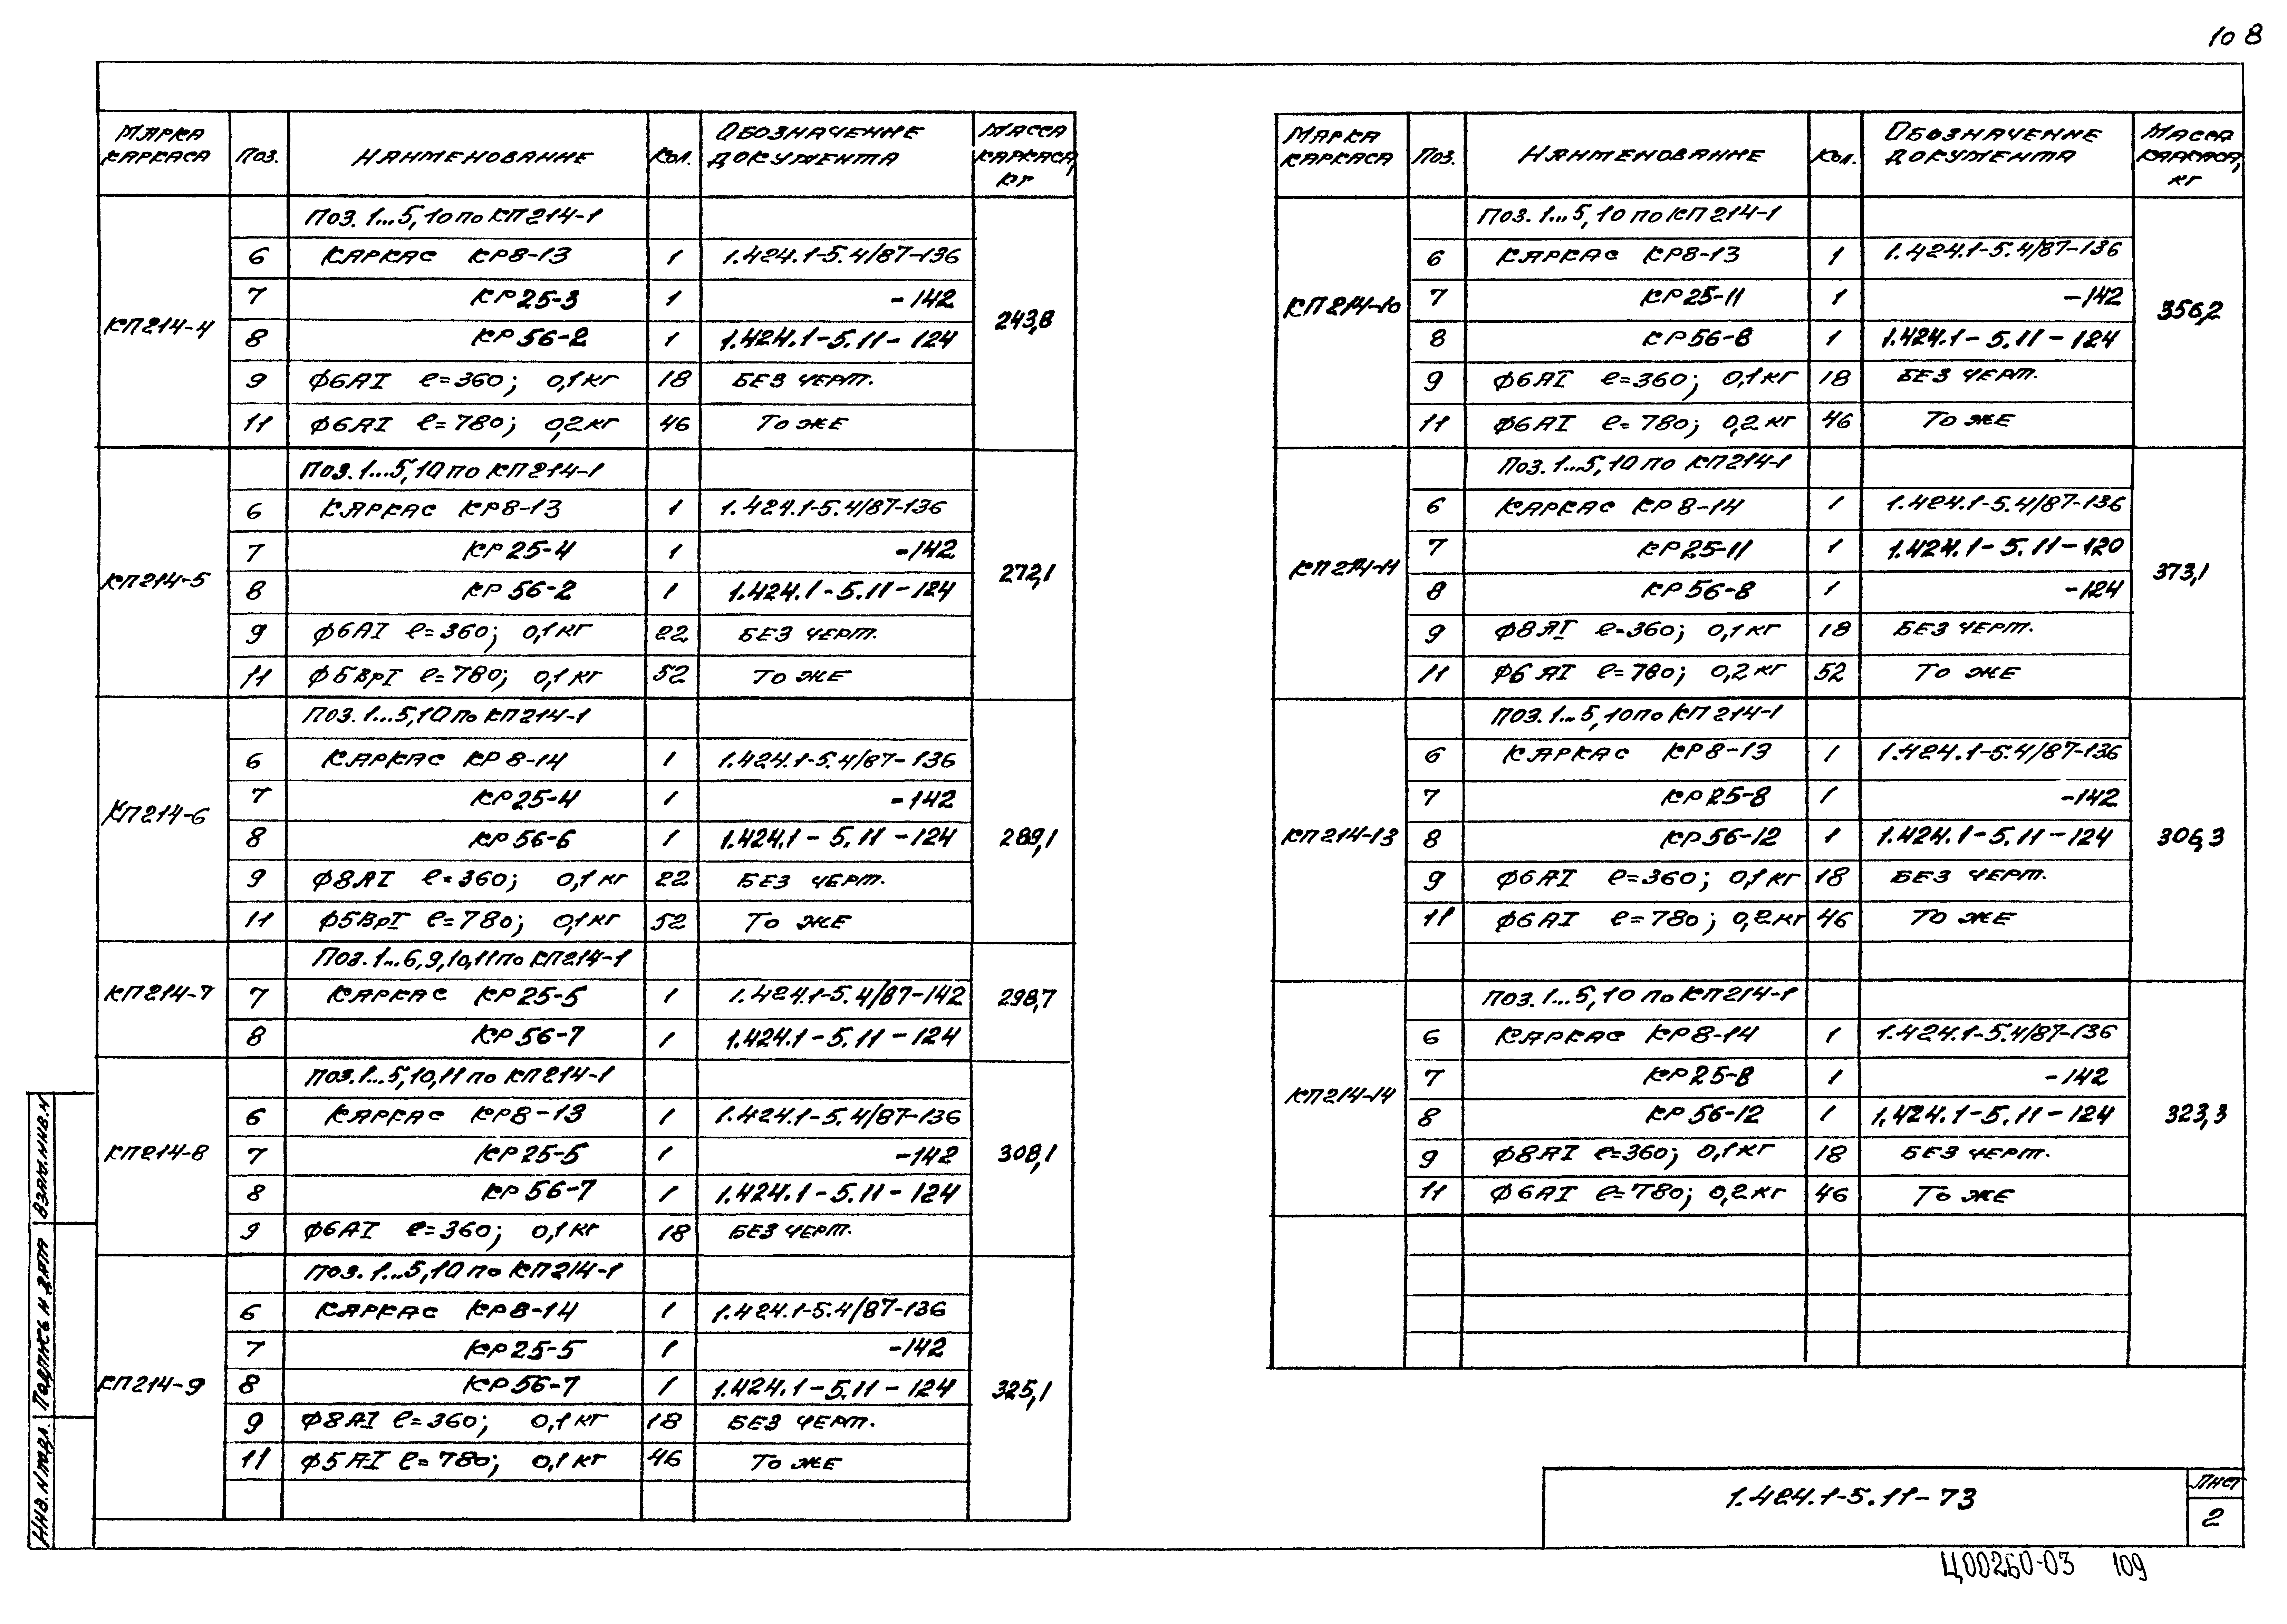 108
Марка каркаса Поз. Наименование Кол. Обозначение документа Масса каркаса, кг
Поз. 1...5, 10 по КП214-1
6 Каркас КР8-13 1 1.424.1-5.4/87-136
7 КР25-3 1 -142
КП214-4 243,8
8 КР56-2 1 1.424.1-5.11-124
9 ф6АI ℓ=360; 0,1кг 18 Без черт.
11 ф6АI ℓ=780; 0,2кг 46 То же
Поз. 1...5, 10 по КП214-1
6 Каркас КР8-13 1 1.424.1-5.4/87-136
7 КР25-4 1 -142
КП214-5 272,1
8 КР56-2 1 1.424.1-5.11-124
9 ф6АI ℓ=360; 0,1кг 22 Без черт.
11 ф5ВрI ℓ=780; 0,1кг 52 То же
Поз. 1...5, 10 по КП214-1
6 Каркас КР8-14 1 1.424.1-5.4/87-136
7 КР25-4 1 -142
КП214-6 289,1
8 КР56-6 1 1.424.1-5.11-124
9 ф8АI ℓ=360; 0,1кг 22 Без черт.
11 ф5ВрI ℓ=780; 0,1кг 52 То же
Поз. 1...6, 9, 10, 11 по КП214-1
КП214-7 7 Каркас КР25-5 1 1.424.1-5.4/87-142 298,7
8 КР56-7 1 1.424.1-5.11-124
Поз. 1...5, 10, 11 по КП214-1
6 Каркас КР8-13 1 1.424.1-5.4/87-136
КП214-8 7 КР25-5 1 -142 308,1
8 КР56-7 1 1.424.1-5.11-124
9 ф6АI ℓ=360; 0,1кг 18 Без черт.
Поз. 1...5, 10 по КП214-1
6 Каркас КР8-14 1 1.424.1-5.4/87-136
7 КР25-5 1 -142
КП214-9 8 КР56-7 1 1.424.1-5.11-124 325,1
9 ф8АI ℓ=360; 0,1кг 18 Без черт.
11 ф5АI ℓ=780; 0,1кг 46 То же
Марка каркаса Поз. Наименование Кол. Обозначение документа Масса каркаса, кг
Поз. 1...5, 10 по КП214-1
6 Каркас КР8-13 1 1.424.1-5.4/87-136
КП214-10 7 КР25-11 1 -142 356,2
8 КР56-8 1 1.424.1-5.11-124
9 ф6АI ℓ=360; 0,1кг 18 Без черт.
11 ф6АI ℓ=780; 0,2кг 46 То же
Поз. 1...5, 10 по КП214-1
6 Каркас КР8-14 1 1.424.1-5.4/87-136
7 КР25-11 1 1.424.1-5.11-120
КП214-11 373,1
8 КР56-8 1 -124
9 ф8АI ℓ=360; 0,1кг 18 Без черт.
11 ф6АI ℓ=780; 0,2кг 52 То же
Поз. 1...5, 10 по КП214-1
6 Каркас КР8-13 1 1.424.1-5.4/87-136
7 КР25-8 1 -142
КП214-13 8 КР56-12 1 1.424.1-5.11-124 306,3
9 ф6АI ℓ=360; 0,1кг 18 Без черт.
11 ф6АI ℓ=780; 0,2кг 46 То же
Поз. 1...5, 10 по КП214-1
6 Каркас КР8-14 1 1.424.1-5.4/87-136
7 КР25-8 1 -142
КП214-14 8 КР56-12 1 1.424.1-5.11-124 323,3
9 ф8АI ℓ=360; 0,1кг 18 Без черт.
11 ф6АI ℓ=780; 0,2кг 46 То же
Инв. N подл. Подпись и дата Взам. инв. N
1.424.1-5.11-73 Лист
2
Ц00260-03 109